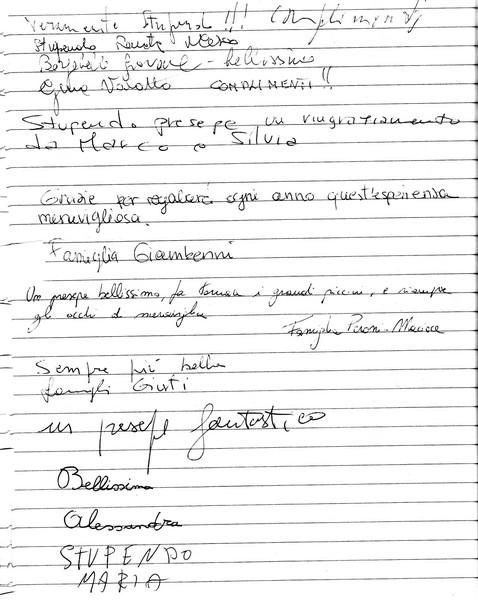 Veramente Stupend !!! Complimenti
Stupendo
bellissimo
Gina COMPLIMENTI!!
Stupendo presepe un ringraziamento
da Marco e Silvia
Grazie per regalarci ogni anno quest'esperienza
meravigliosa.
Famiglia Giambenni
Un presepe bellissimo, fa i grandi piccini, e riempie
gli occhi di meraviglia
Famiglia
Sempre più bello
famigli Giusti
un presepe fantastico
Bellissimo
Alessandra
STUPENDO
MARIA